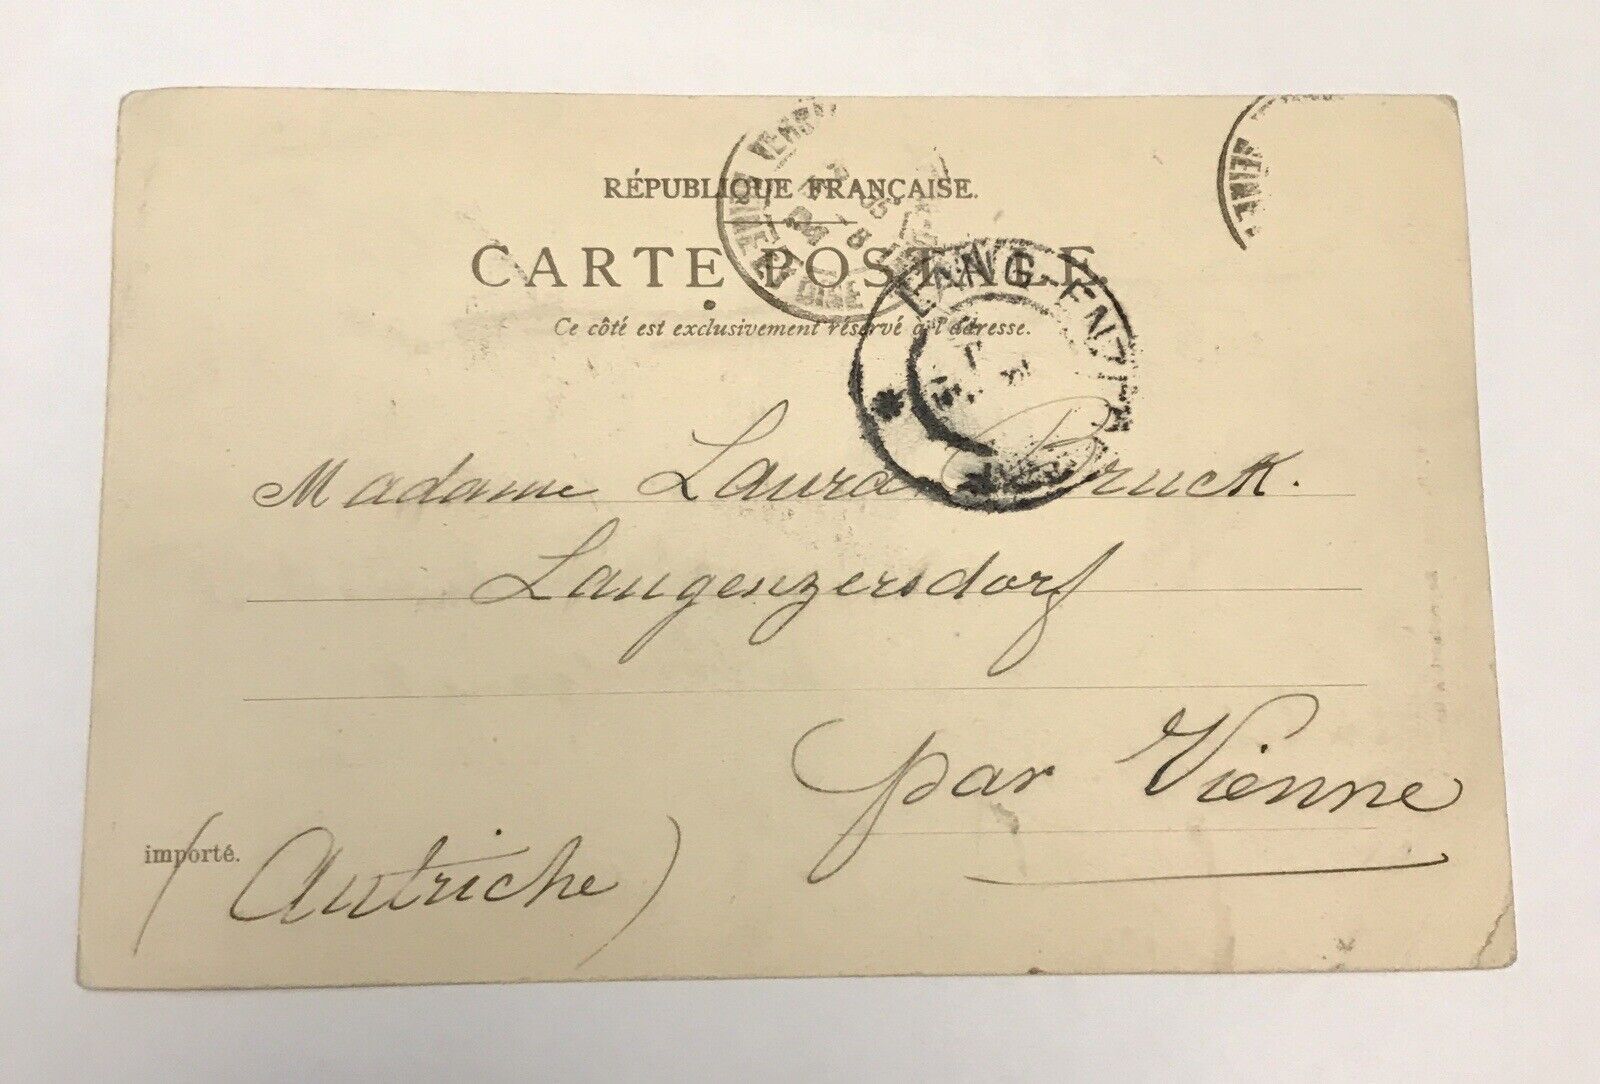 RÉPUBLIQUE FRANÇAISE.
CARTE POSTALE
Ce côté est exclusivement réservé à l'adresse.
LANG-ENZ
Madame Laura Bruck.
Langenzersdorf
par Vienne
importé.
(Autriche)